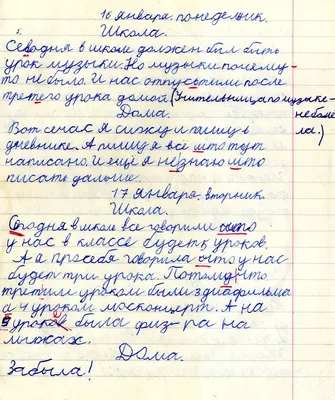 16 января понедельник.
Школа.
Севодня в школе должен был быть
урок музыки. Но музыки почему-
то не было. И нас отпустили после
третего урока домой (Учительница по музыке-
Дома. не было
Вот сечас я сижу и пишу в ла.)
дневнике. А пишу я всё што тут
написано. И ещё я незнаю што
писать дальше.
17 января, вторник.
Школа.
Согодня в школе все говорили што
у нас в классе будет 5 уроков.
А я про себя говорила што у нас
будет три урока. Потомушто
третим уроком были 3 диафильма
а 4 уроком москонцерт. А на
5 уроке была физ-ра на
лыжах.
Дома.
Забыла!